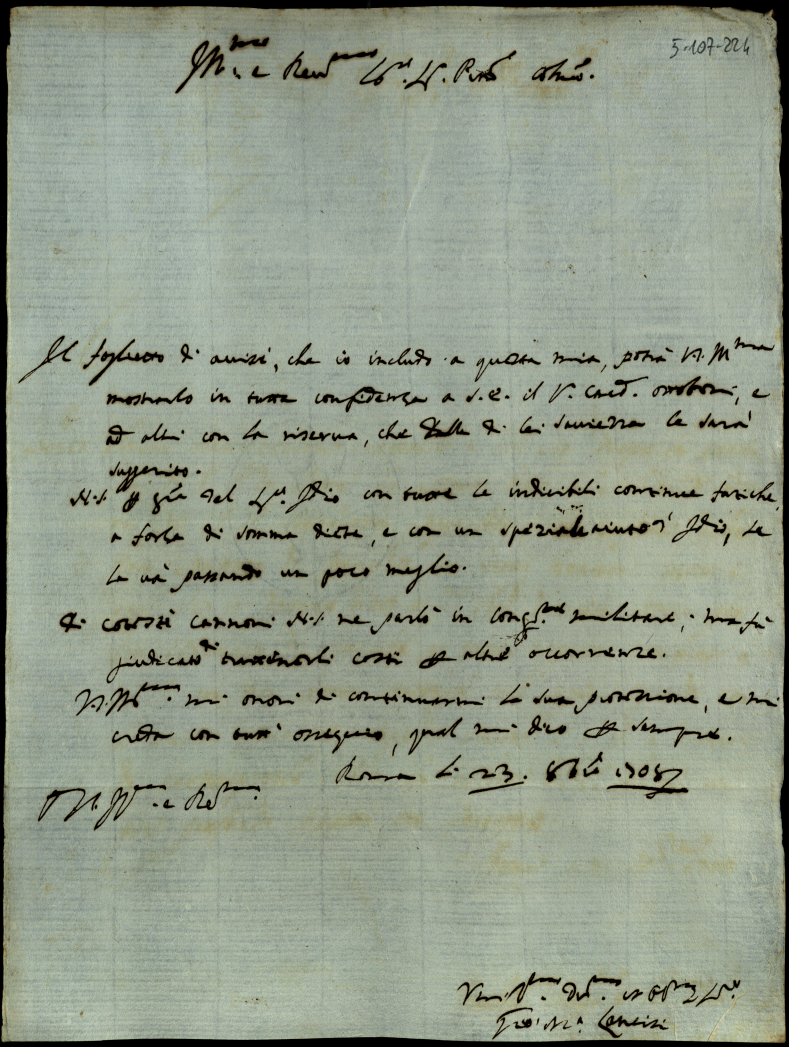 5-107-224
Ill.mo e Rev.mo Sig.r Sig.r Pron Colmo.
Il foglietto di avvisi, che io includo a questa mia, potrà V.S. Ill.ma
mostrarlo in tutta confidenza a S.E. il S. Card. Ottoboni, e
ad altri con la riserva, che dalla di lei saviezza le sarà
suggerito.
N.S. per gra del Sig.r Iddio con tutte le indicibili continue fatiche,
a forza di somma diete, e con un speziale aiuto d'Iddio, se
la và passando un poco meglio.
Di cotesti cannoni N.S. ne parlò in Cong.ne militare; ma fù
giudicato di trattenerli costì per altre occorrenze.
V.S. Ill.ma mi onori di continuarmi la sua protezione, e mi
creda con tutt'ossequio, qual mi dico per sempre.
Roma li 23. 8bre 1708
V.S. Ill.ma e Rev.ma
Um.o Dev.mo et Obb.mo Ser.
Gio: M.a Lancisi